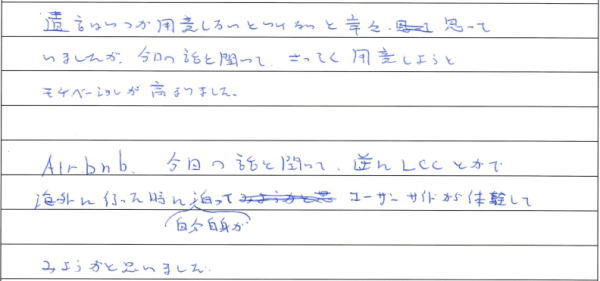 遺言はいつか用意しないといけないと常々、思って
いましたが、今日の話を聞いて、さっそく用意しようと
モチベーションが高まりました。
Airbnb、今日の話を聞いて、逆にLCCとかで
海外に行った時に自分自身が泊ってユーザーサイドから体験して
みようかと思いました。